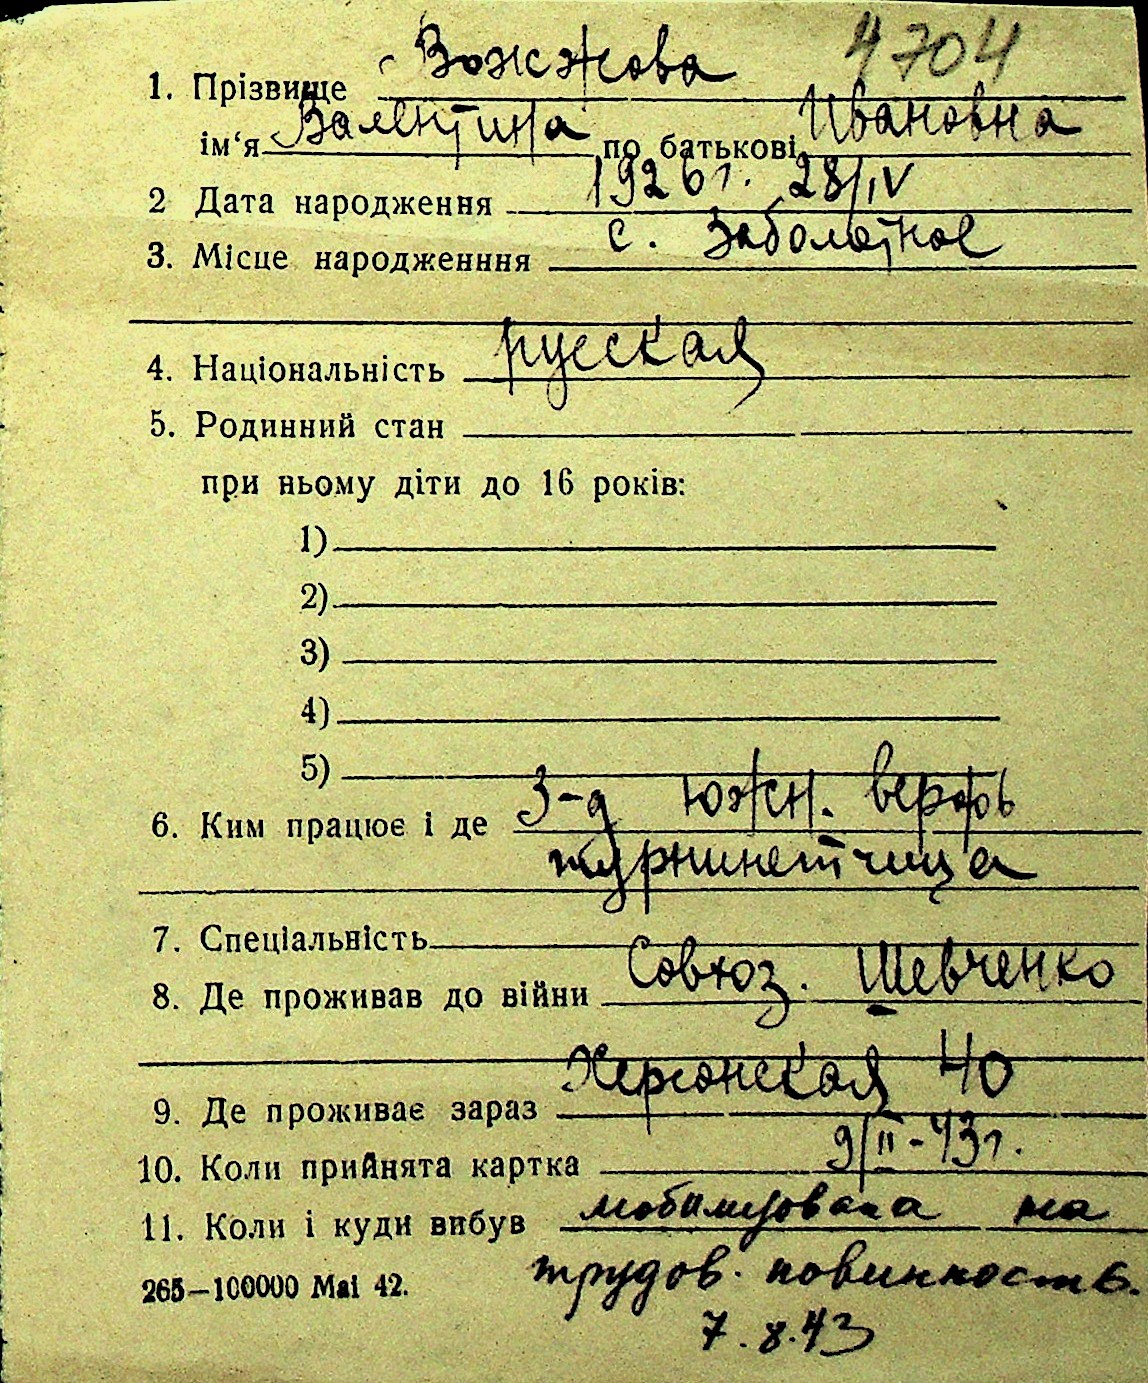 4704
1. Прізвище Вожжова
ім‘я Валентина по батькові Ивановна
2 Дата народження 1926 г. 28/IV
3. Місце народженння с. Заболотное
4. Національність русская
5. Родинний стан
при ньому діти до 16 років:
1)
2)
3)
4)
5)
6. Ким працює і де З-д южн. верфь
турникетчица
7. Спеціальність
8. Де проживав до війни Совхоз. Шевченко
9. Де проживає зараз Херсонская 40
10. Коли прийнята картка 9/II-43 г.
11. Коли і куди вибув мобилизована на
265—100000 Mai 42. трудов. повинность.
7.8.43